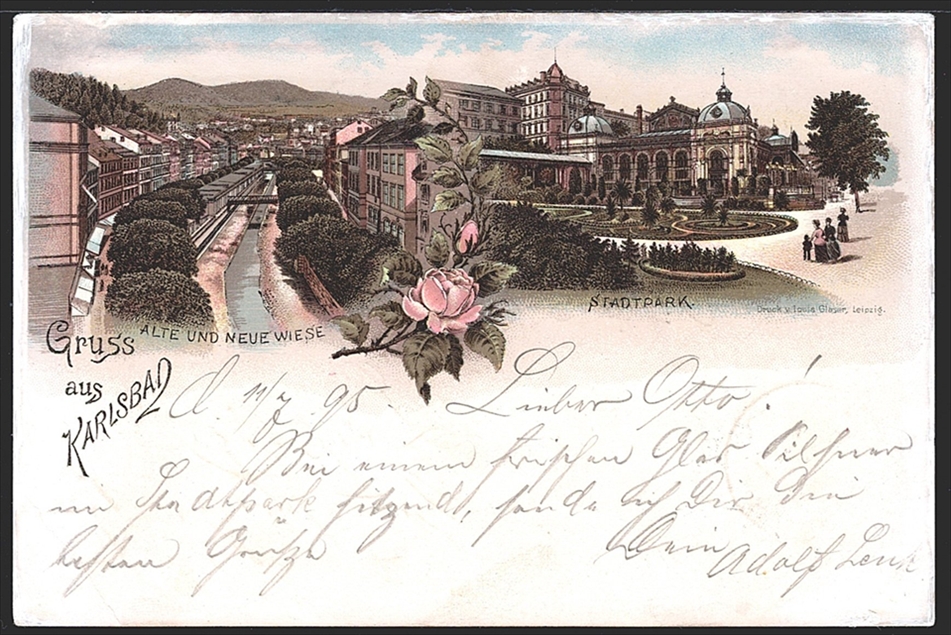 ALTE UND NEUE WIESE
STADTPARK.
Druck v. Louis Glaser, Leipzig.
Gruss
aus
KARLSBAD
d. 11/7 95. Lieber Otto!
Bei einem frischen Glas Pilsner
im Stadtpark sitzend, sende ich Dir die
besten Grüße
Dein Adolf Lenk